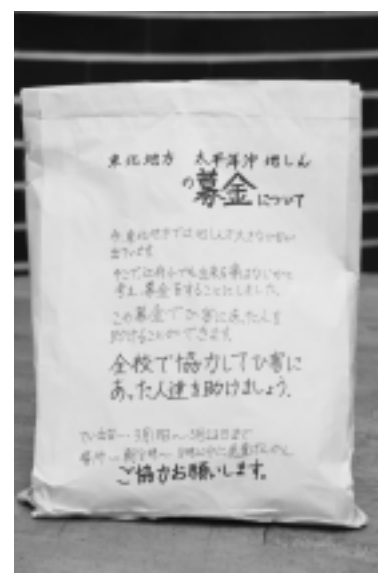 東北地方 太平洋沖 地しん
の募金について
今、東北地方では地しんで大きなひ害が
出ています。
そこで、江南小でも出来る事はないかと
考え、募金をすることにしました。
この募金でひ害にあった人を
助けることができます。
全校で協力してひ害に
あった人達を助けましょう。
ご協力お願いします。